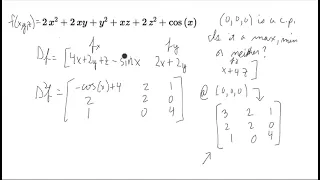 f(x,y,z) = 2 x² + 2 xy + y² + xz + 2 z² + cos (x)
(0,0,0) is a c.p.
Is it a max, min
or neither?
fx fy fz
Df = [4x+2y+z - sin x 2x+2y x+4z]
D²f = [-cos(x)+4 2 1
2 2 0
1 0 4]
@ (0,0,0)
[3 2 1
2 2 0
1 0 4]